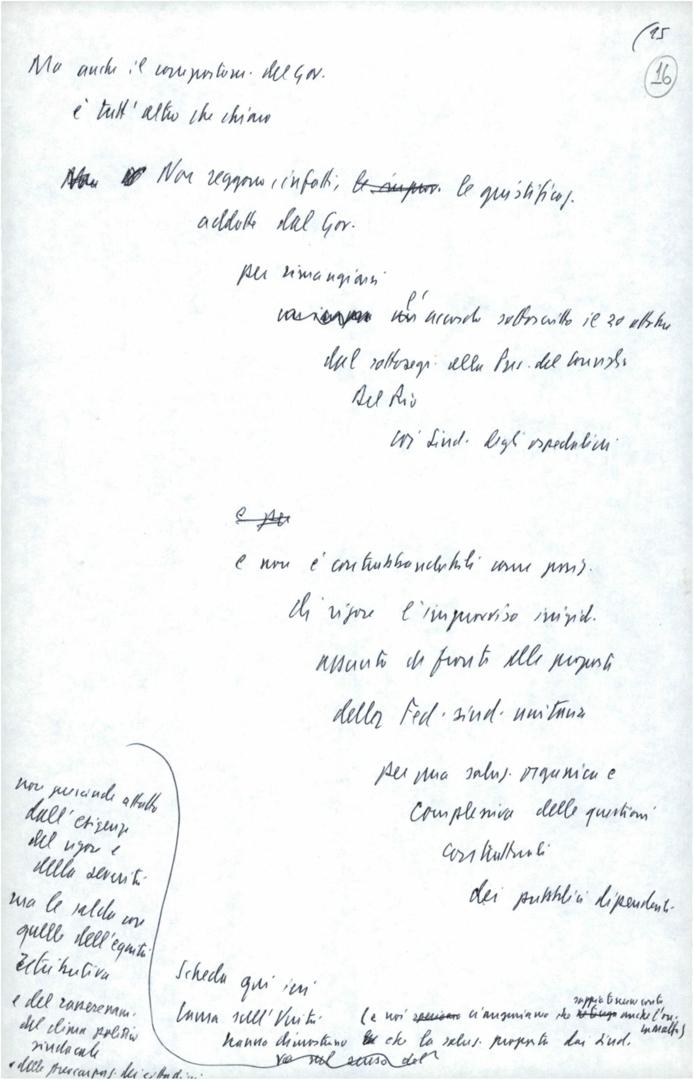 15
16
Ma anche il comportam. del Gov.
è tutt'altro che chiaro
Non Non reggono, infatti, le giustificaz.
addotte dal Gov.
per rimangiarsi
l' accordo sottoscritto il 20 ottobre
dal sottosegr. alla Pres. del Consiglio
Del Rio
coi Sind. degli ospedalieri
e per
e non è contrabbandabile come posiz.
di rigore l'improvvisa irrigid.
assunto di fronte alle proposte
della Fed. sind. unitaria
per una soluz. organica e
complessiva delle questioni
contrattuali
dei pubblici dipendenti.
non prescinde affatto
dall'esigenza
del rigore e
della severità
ma le salda con
quelle dell'equità
retributiva
e del rasserenam.
del clima politico
sindacale
e delle preoccupaz. dei cittadini
Scheda qui ieri
Lama sull'Unità (e noi ci auguriamo che sappia tenere conto anche l'on.
hanno dimostrato che la soluz. proposta dai sind.
va nel senso dell'